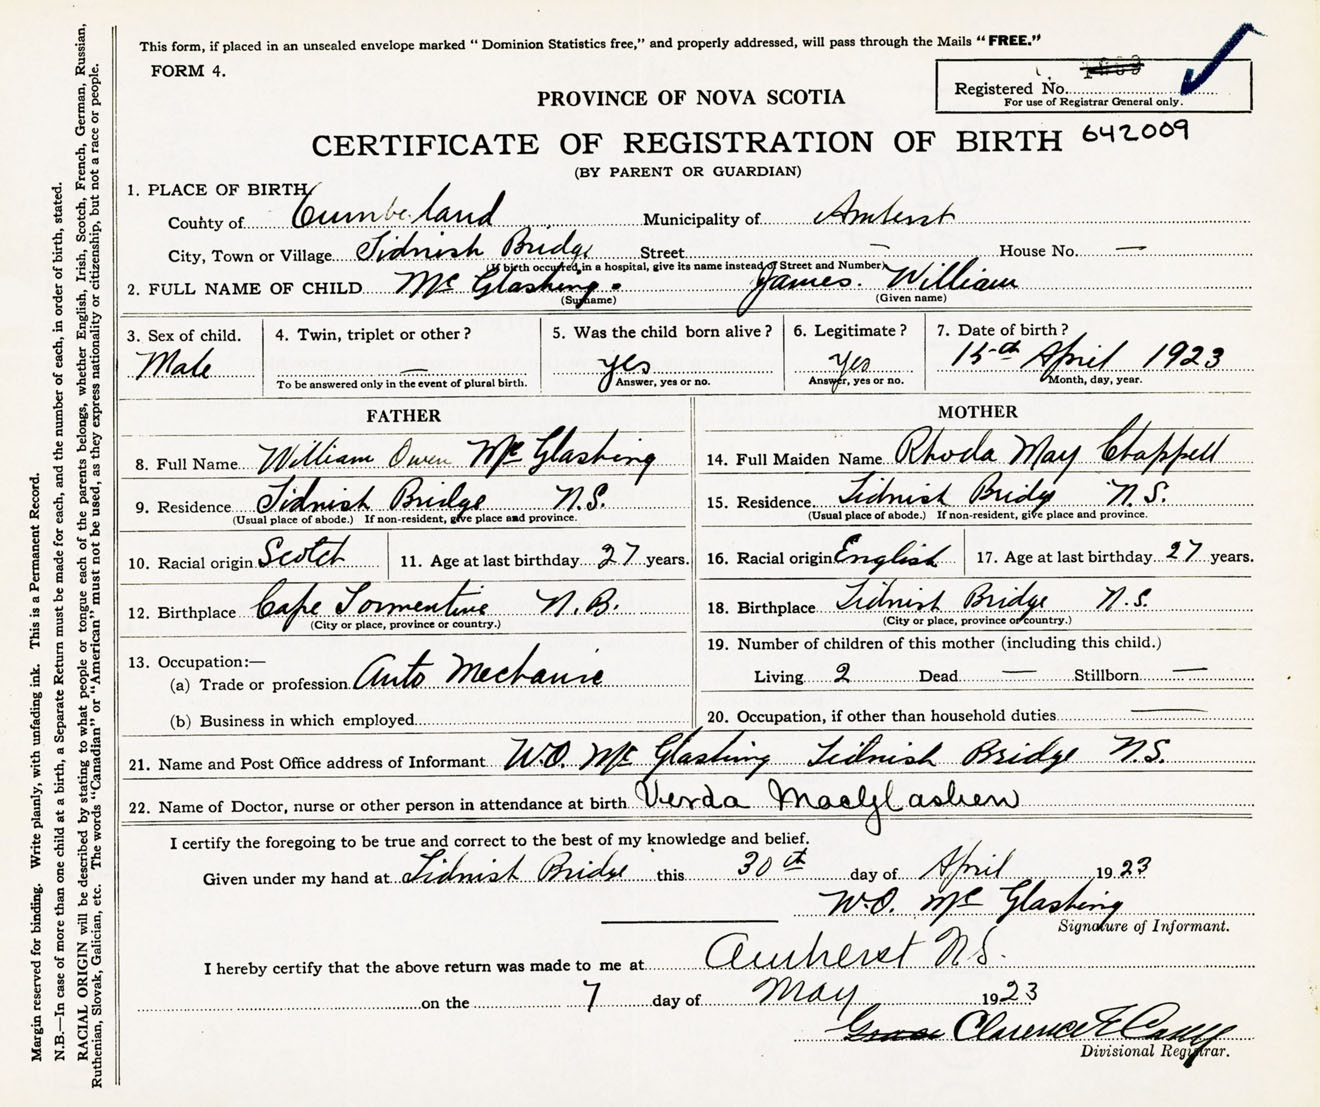 This form, if placed in an unsealed envelope marked "Dominion Statistics free," and properly addressed, will pass through the Mails "FREE."
FORM 4.
Registered No.
For use of Registrar General only.
PROVINCE OF NOVA SCOTIA
CERTIFICATE OF REGISTRATION OF BIRTH 642009
(BY PARENT OR GUARDIAN)
1. PLACE OF BIRTH
County of Cumberland Municipality of Amherst
City, Town or Village Tidnish Bridge Street — House No. —
(If birth occurred in a hospital, give its name instead of Street and Number)
2. FULL NAME OF CHILD Mc Glashing. James. William
(Surname) (Given name)
3. Sex of child. 4. Twin, triplet or other? 5. Was the child born alive? 6. Legitimate? 7. Date of birth?
Male — yes Yes 15th April 1923
To be answered only in the event of plural birth. Answer, yes or no. Answer, yes or no. Month, day, year.
FATHER
8. Full Name William Owen Mc Glashing
9. Residence Tidnish Bridge N.S.
(Usual place of abode.) If non-resident, give place and province.
10. Racial origin Scotch 11. Age at last birthday 27 years.
12. Birthplace Cape Tormentine N.B.
(City or place, province or country.)
13. Occupation:—
(a) Trade or profession Auto Mechanic
(b) Business in which employed
MOTHER
14. Full Maiden Name Rhoda May Chappell
15. Residence Tidnish Bridge N.S.
(Usual place of abode.) If non-resident, give place and province.
16. Racial origin English 17. Age at last birthday 27 years.
18. Birthplace Tidnish Bridge N.S.
(City or place, province or country.)
19. Number of children of this mother (including this child.)
Living 2 Dead — Stillborn —
20. Occupation, if other than household duties —
21. Name and Post Office address of Informant W.O. Mc Glashing Tidnish Bridge N.S.
22. Name of Doctor, nurse or other person in attendance at birth Verda MacGlashen
I certify the foregoing to be true and correct to the best of my knowledge and belief.
Given under my hand at Tidnish Bridge this 30th day of April 1923
W.O. Mc Glashing
Signature of Informant.
I hereby certify that the above return was made to me at Amherst N.S.
on the 7 day of May 1923
Clarence E Casey
Divisional Registrar.
Margin reserved for binding. Write plainly, with unfading ink. This is a Permanent Record.
N.B.—In case of more than one child at a birth, a Separate Return must be made for each, and the number of each, in order of birth, stated.
RACIAL ORIGIN will be described by stating to what people or tongue each of the parents belongs, whether English, Irish, Scotch, French, German, Russian,
Ruthenian, Slovak, Galician, etc. The words "Canadian" or "American" must not be used, as they express nationality or citizenship, but not a race or people.